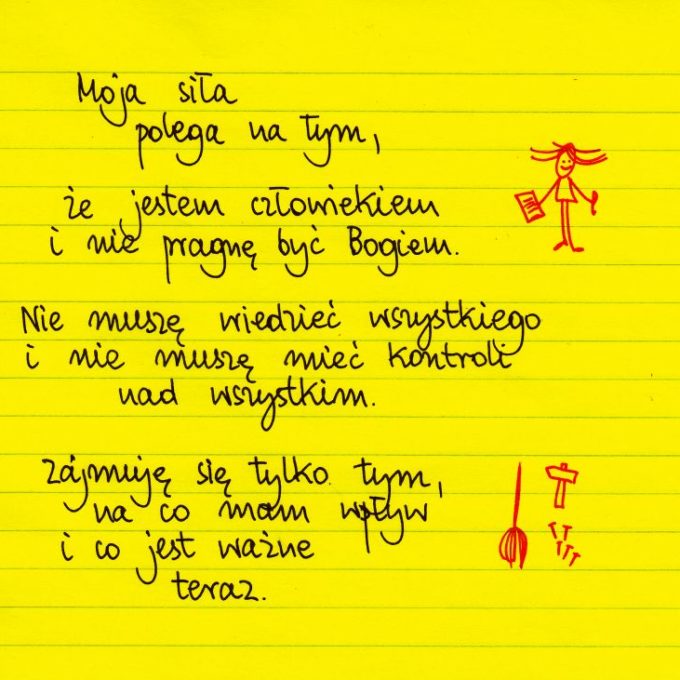 Moja siła
polega na tym,
że jestem człowiekiem
i nie pragnę być Bogiem.
Nie muszę wiedzieć wszystkiego
i nie muszę mieć kontroli
nad wszystkim.
Zajmuję się tylko tym,
na co mam wpływ
i co jest ważne
teraz.